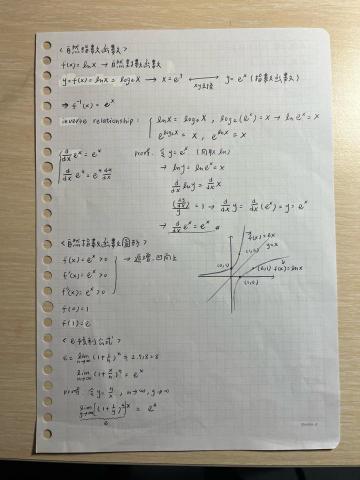 <自然指數函數>
f(x) = lnx → 自然對數函數
y = f(x) = lnx = logₑx → x = e^y ⟷ y = e^x (指數函數)
xy互換
⇒ f⁻¹(x) = e^x
inverse relationship : { lnx = logₑx , logₑ(e^x) = x → ln e^x = x
e^(logₑx) = x , e^(lnx) = x
d/dx e^x = e^x
d/dx e^u = e^u du/dx
proof. 令 y = e^x (同取ln)
→ lny = lne^x = x
d/dx lny = d/dx x
(dy/dx)/y = 1 → d/dx y = d/dx (e^x) = y = e^x
→ d/dx e^x = e^x
<自然指數函數圖形>
f(x) = e^x > 0
f'(x) = e^x > 0
f''(x) = e^x > 0
→ 遞增, 凹向上
f(0) = 1
f(1) = e
y=x
(0,1)
(1,0)
f(x) = lnx
<e 的極限公式>
e = lim n→∞ (1 + 1/n)^n ≈ 2.71828
lim n→∞ (1 + x/n)^n = e^x
proof. 令 y = n/x , n→∞, y→∞
lim y→∞ [(1 + 1/y)^y]^x = e^x
e